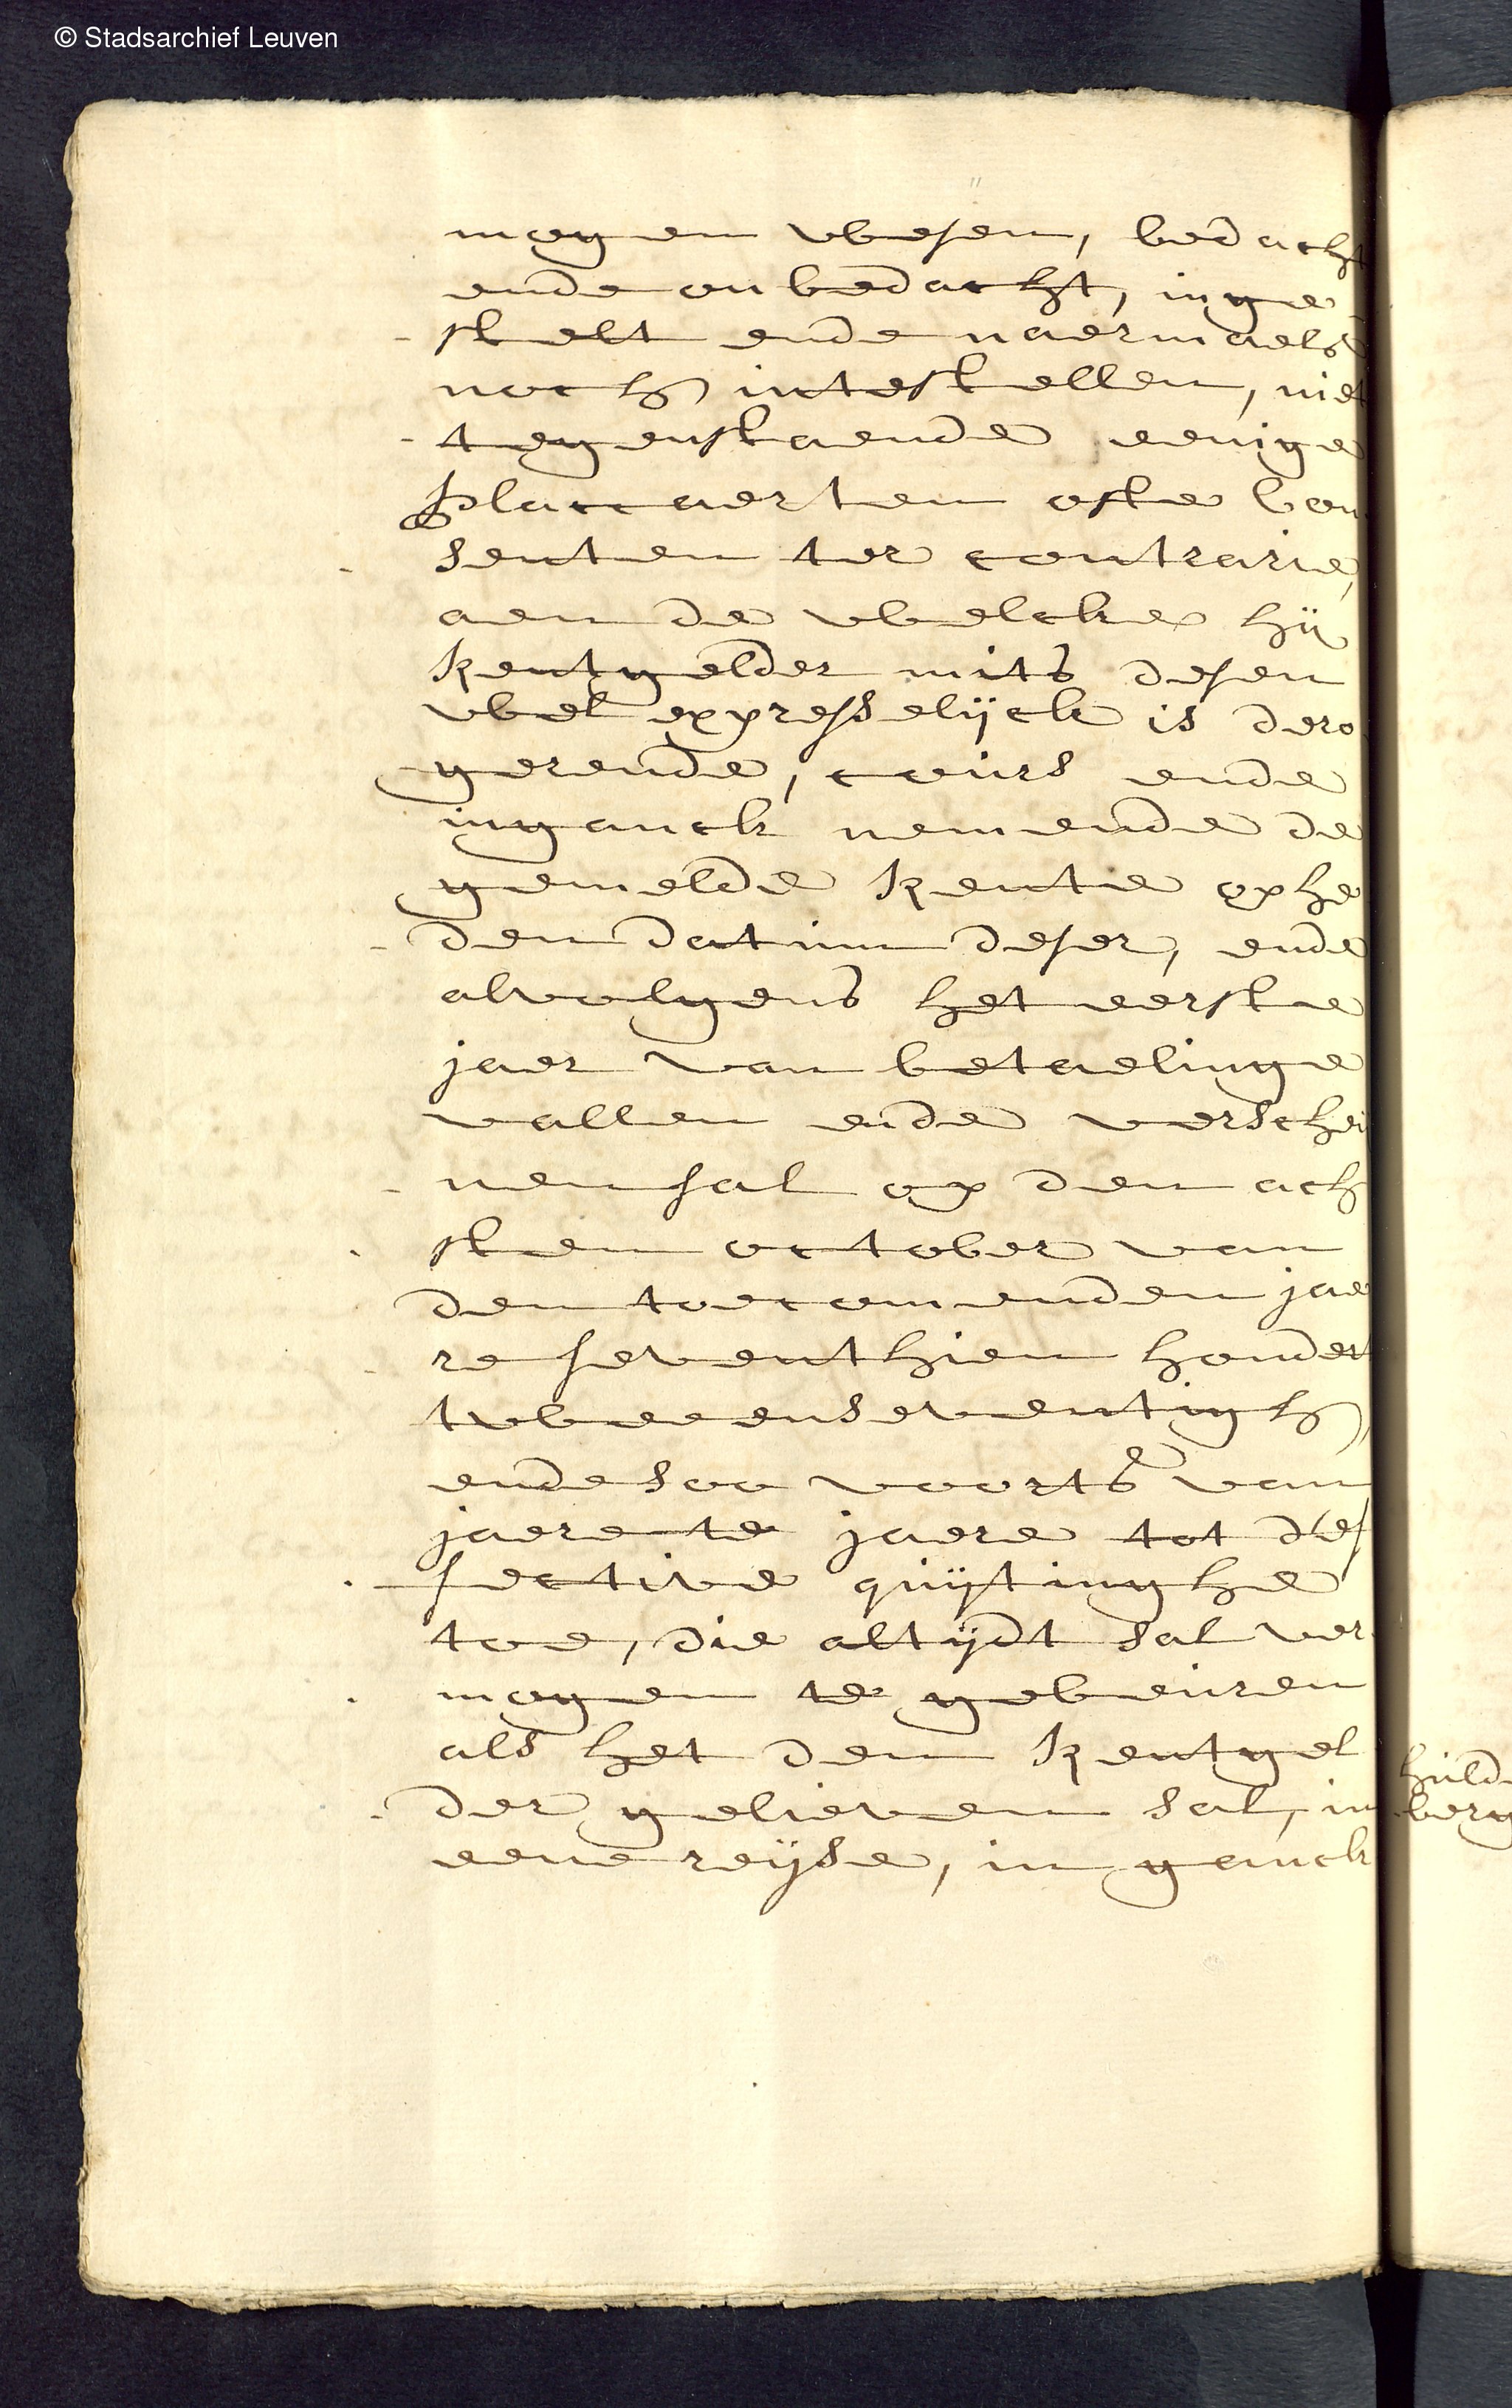 © Stadsarchief Leuven
mogen wesen, bedacht
ende onbedacht, inge
stelt ende naermaels
noch intestellen, niet
tegenstaende eenige
placcaerten ofte con
senten ter contrarie,
aen de welcke hij
Rentgelder mits desen
wel expresselijck is dero
gerende, cours ende
inganck nemende de
gemelde Rente ophe
den datum deser, ende
alvolgens het eerste
jaer van betaelinge
vallen ende verschei
nen sal op den ach
sten october van
den toecomenden jae
re seventhien hondert
tweeenseventigh
ende soo voorts van
jaere te jaere tot d'ef
fective quijtinghe
toe, die altijdt sal ver
mogen te gebeuren
als het den Rentgel
der gelieven sal, in
eene reijse, in ganck
huld
berg